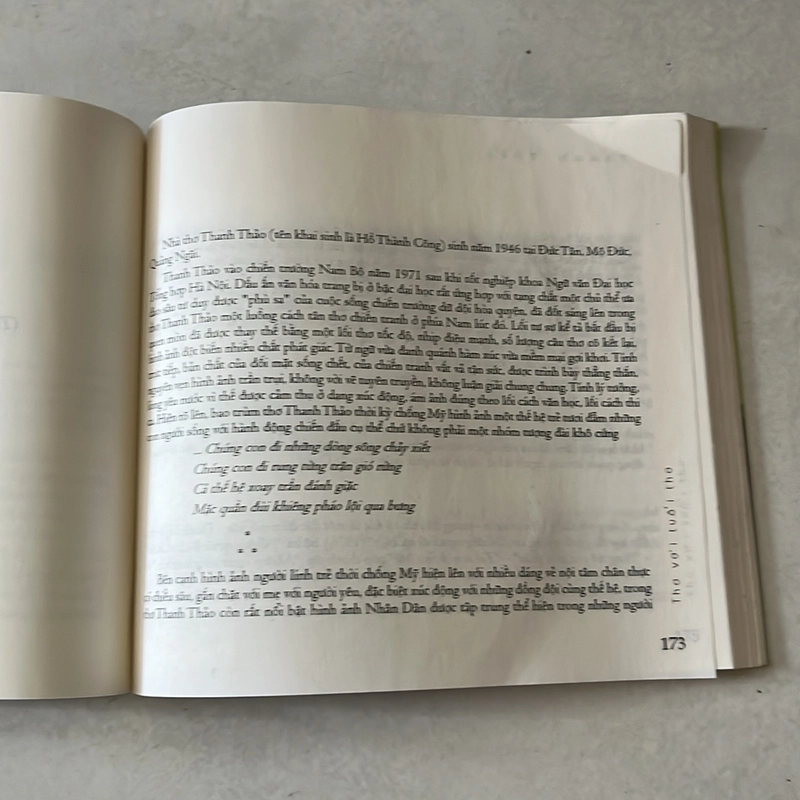 Nhà thơ Thanh Thảo (tên khai sinh là Hồ Thành Công) sinh năm 1946 tại Đức Tân, Mộ Đức,
Quảng Ngãi.
Thanh Thảo vào chiến trường Nam Bộ năm 1971 sau khi tốt nghiệp khoa Ngữ văn Đại học
Tổng hợp Hà Nội. Dấu ấn văn hóa trang bị ở bậc đại học rất ứng hợp với tạng chất một chủ thể ưa
sâu tư duy được "phù sa" của cuộc sống chiến trường dữ dội hòa quyện, đã đốt sáng lên trong
thơ Thanh Thảo một luồng cách tân thơ chiến tranh ở phía Nam lúc đó. Lối tự sự kể tả bắt đầu bị
quen mòn đã được thay thế bằng một lối thơ tốc độ, nhịp điệu mạnh, số lượng câu thơ có kết lại,
hình ảnh đột biến nhiều chất phát giác. Từ ngữ vừa đanh quánh hàm xúc vừa mềm mại gợi khơi. Tính
trực tiếp, bản chất của đối mặt sống chết, của chiến tranh vất vả tận sức, được trình bày thẳng thắn,
nguyên vẹn hình ảnh trần trụi, không vời vẽ tuyên truyền, không luận giải chung chung. Tính lý tưởng,
lòng yêu nước vì thế được cảm thụ ở dạng xúc động, ám ảnh đúng theo lối cách văn học, lối cách thi
ca. Hiện rõ lên, bao trùm thơ Thanh Thảo thời kỳ chống Mỹ hình ảnh một thế hệ trẻ tươi đầm những
con người sống với hành động chiến đấu cụ thể chứ không phải một nhóm tượng đài khô cứng
– Chúng con đi những dòng sông chảy xiết
Chúng con đi rung rừng trăn gió rừng
Cả thế hệ xoay trần đánh giặc
Mặc quần đùi khiêng pháo lội qua bưng
*
* *
Bên cạnh hình ảnh người lính trẻ thời chống Mỹ hiện lên với nhiều dáng vẻ nội tâm chân thực
có chiều sâu, gắn chặt với mẹ với người yêu, đặc biệt xúc động với những đồng đội cùng thế hệ, trong
thơ Thanh Thảo còn rất nổi bật hình ảnh Nhân Dân được tập trung thể hiện trong những người
Thơ với tuổi thơ
173